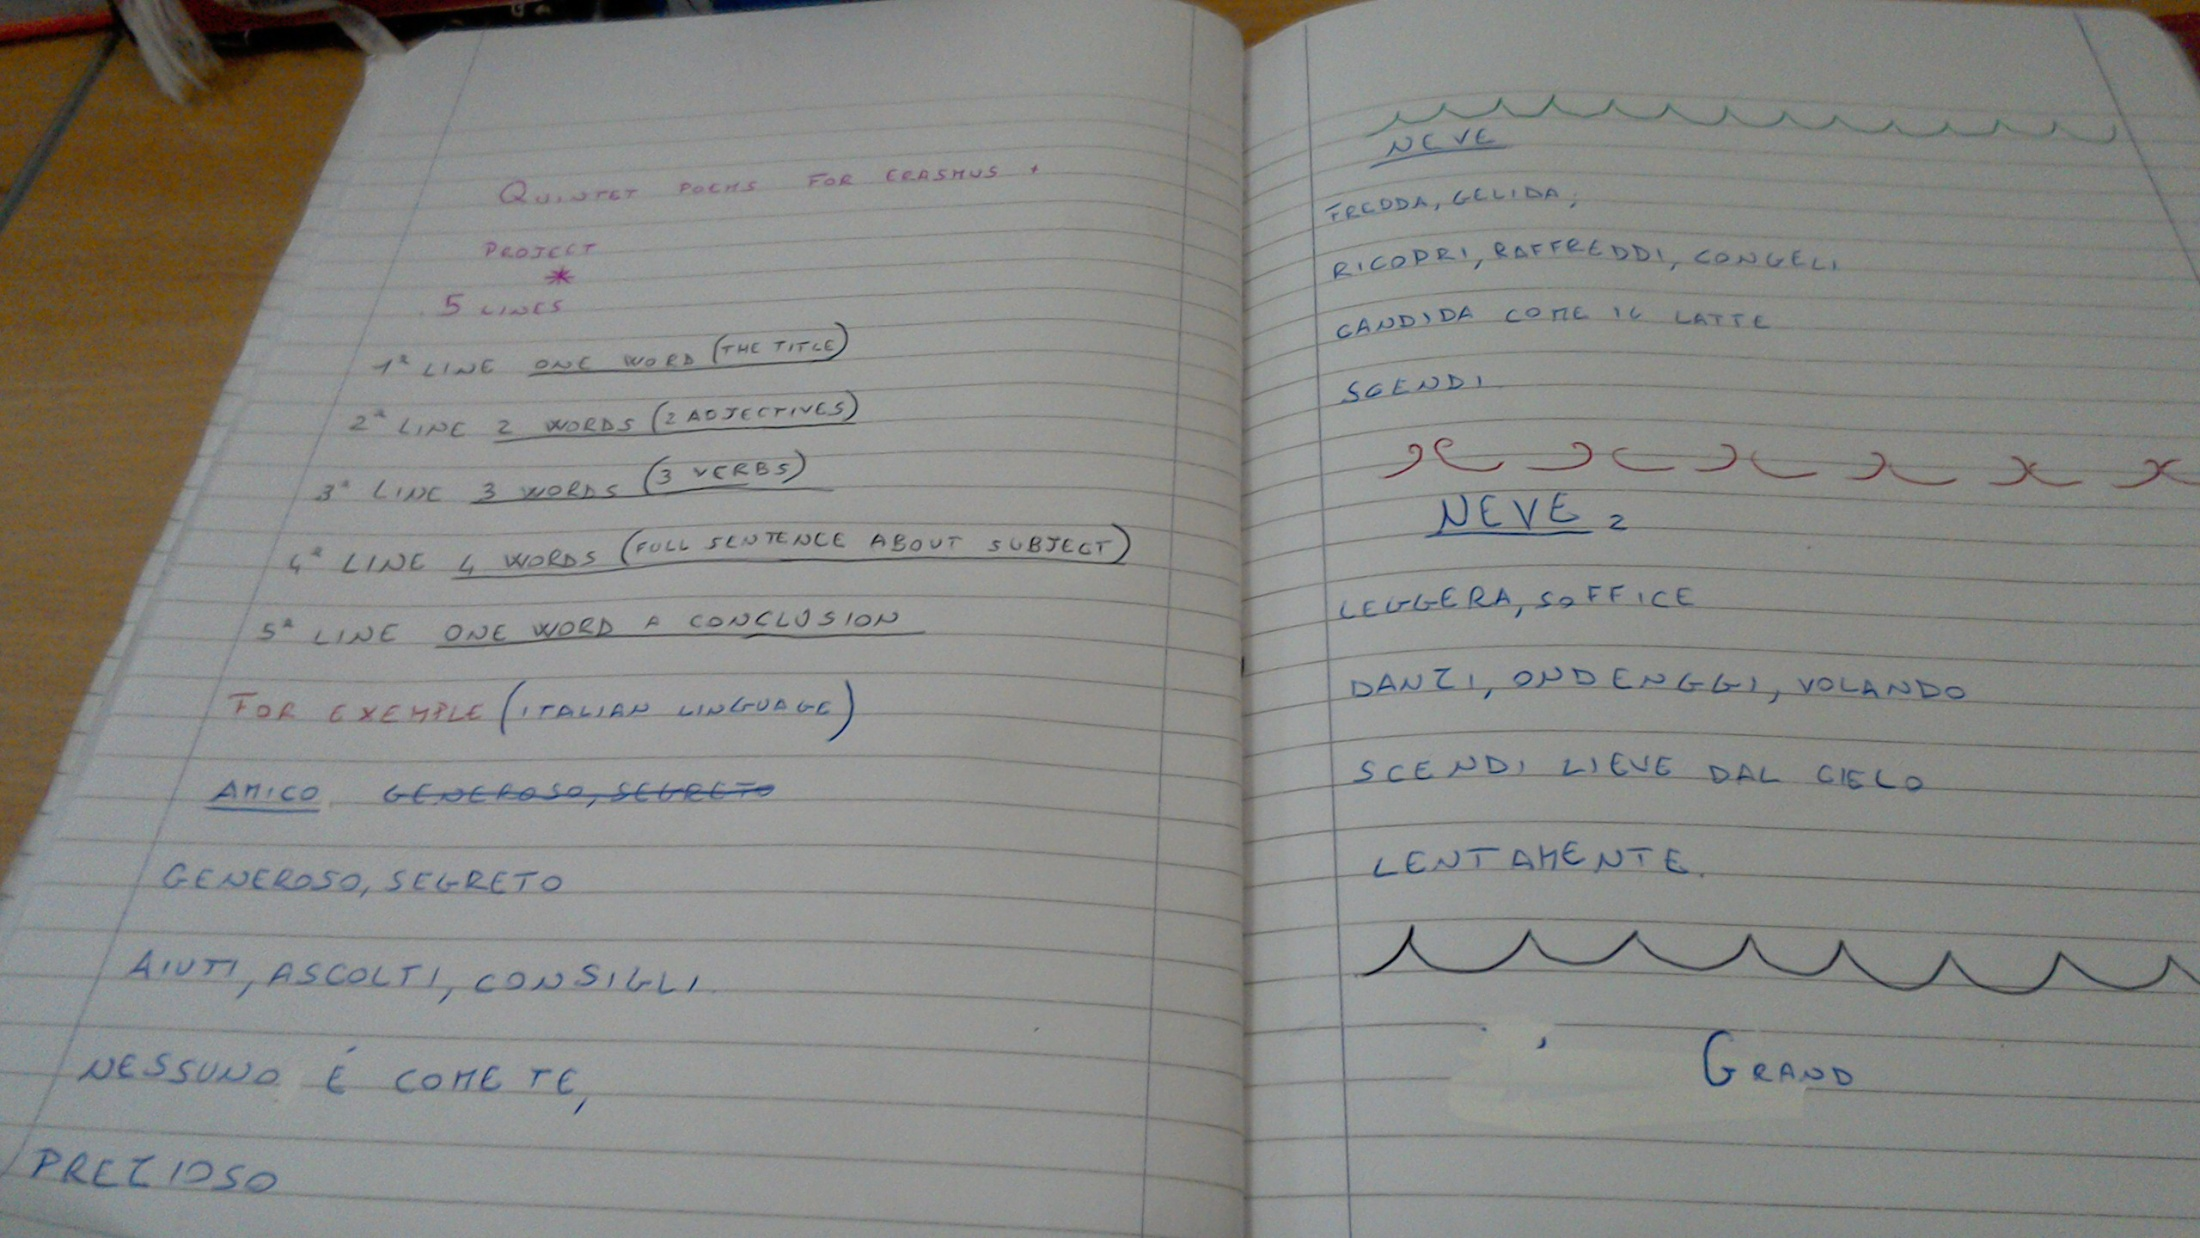 QUINTET POEMS FOR ERASMUS +
PROJECT
*
5 LINES
1ª LINE ONE WORD (THE TITLE)
2ª LINE 2 WORDS (2 ADJECTIVES)
3ª LINE 3 WORDS (3 VERBS)
4ª LINE 4 WORDS (FULL SENTENCE ABOUT SUBJECT)
5ª LINE ONE WORD A CONCLUSION
FOR EXEMPLE (ITALIAN LINGUAGE)
AMICO GENEROSO, SEGRETO
GENEROSO, SEGRETO
AIUTI, ASCOLTI, CONSIGLI.
NESSUNO É COME TE,
PREZIOSO
NEVE
FREDDA, GELIDA,
RICOPRI, RAFFREDDI, CONGELI
CANDIDA COME IL LATTE
SCENDI
NEVE 2
LEGGERA, SOFFICE
DANZI, ONDENGGI, VOLANDO
SCENDI LIEVE DAL CIELO
LENTAMENTE.
GRAND